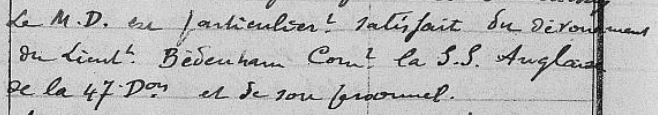 Le M.D. est particulier^t satisfait du dévouement
du Lieut^t. Bedenham Com^t la S.S. Anglaise
de la 47 D^on et de son personnel.